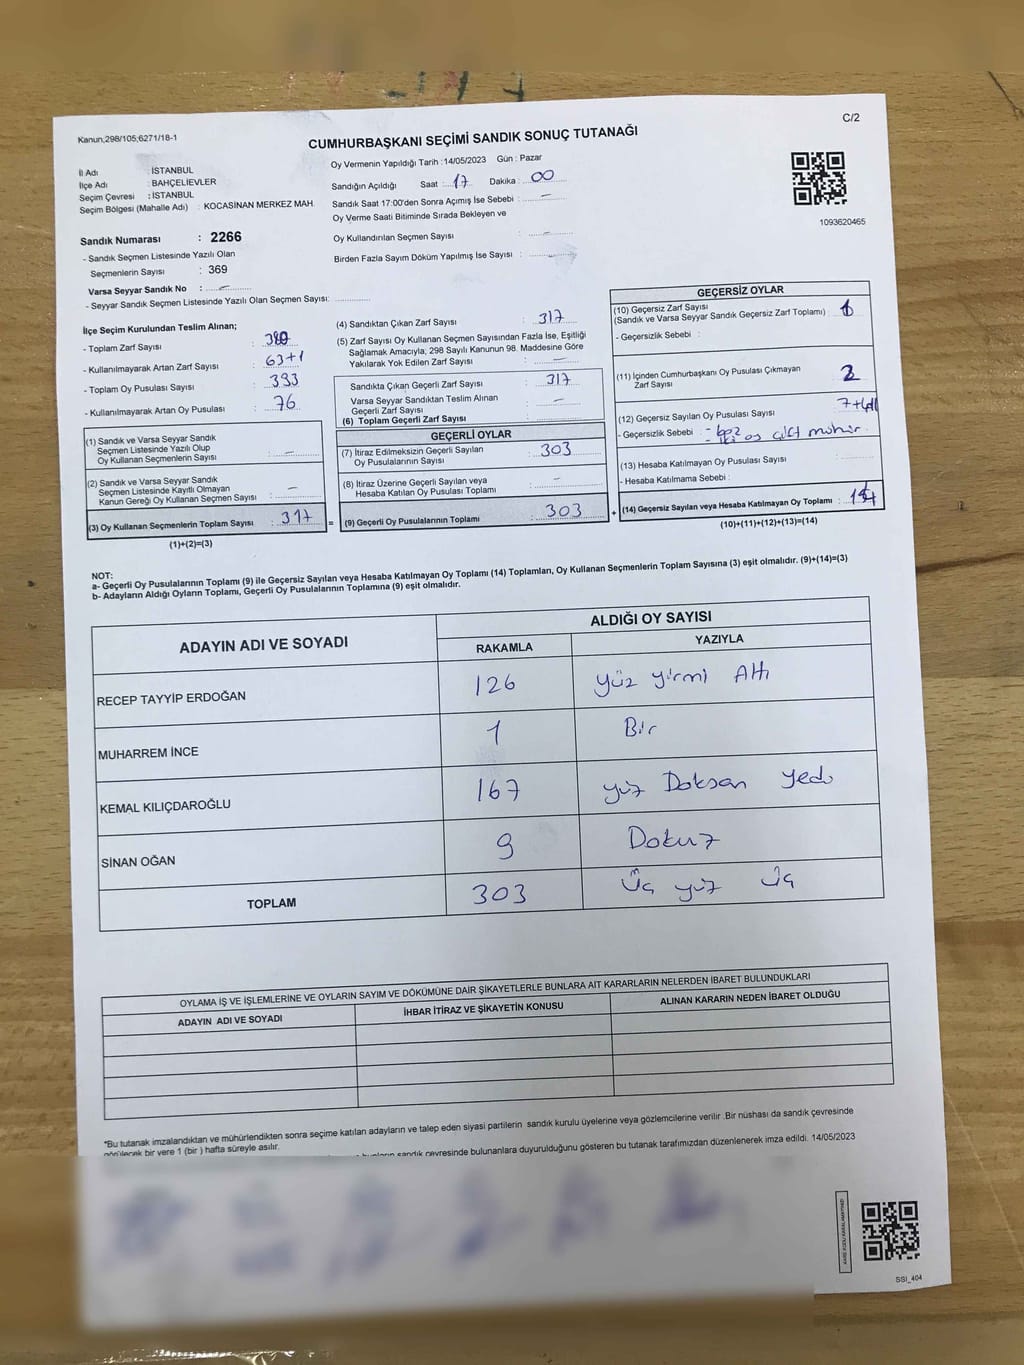 Kanun;298/105;6271/18-1
C/2
CUMHURBAŞKANI SEÇİMİ SANDIK SONUÇ TUTANAĞI
İl Adı : İSTANBUL
İlçe Adı : BAHÇELİEVLER
Seçim Çevresi : İSTANBUL
Seçim Bölgesi (Mahalle Adı) : KOCASİNAN MERKEZ MAH.
Oy Vermenin Yapıldığı Tarih :14/05/2023 Gün : Pazar
Sandığın Açıldığı Saat : 17 Dakika : 00
Sandık Saat 17:00'den Sonra Açımış İse Sebebi : –
Oy Verme Saati Bitiminde Sırada Bekleyen ve
Oy Kullandırılan Seçmen Sayısı : –
Birden Fazla Sayım Döküm Yapılmış İse Sayısı :
1093620465
Sandık Numarası : 2266
- Sandık Seçmen Listesinde Yazılı Olan
Seçmenlerin Sayısı : 369
Varsa Seyyar Sandık No : –
- Seyyar Sandık Seçmen Listesinde Yazılı Olan Seçmen Sayısı:
İlçe Seçim Kurulundan Teslim Alınan;
- Toplam Zarf Sayısı :
- Kullanılmayarak Artan Zarf Sayısı : 63+1
- Toplam Oy Pusulası Sayısı : 393
- Kullanılmayarak Artan Oy Pusulası : 76
(1) Sandık ve Varsa Seyyar Sandık
Seçmen Listesinde Yazılı Olup
Oy Kullanan Seçmenlerin Sayısı : –
(2) Sandık ve Varsa Seyyar Sandık
Seçmen Listesinde Kayıtlı Olmayan
Kanun Gereği Oy Kullanan Seçmen Sayısı : –
(3) Oy Kullanan Seçmenlerin Toplam Sayısı : 317
(1)+(2)=(3)
(4) Sandıktan Çıkan Zarf Sayısı : 317
(5) Zarf Sayısı Oy Kullanan Seçmen Sayısından Fazla İse, Eşitliği
Sağlamak Amacıyla; 298 Sayılı Kanunun 98. Maddesine Göre
Yakılarak Yok Edilen Zarf Sayısı : –
Sandıkta Çıkan Geçerli Zarf Sayısı : 317
Varsa Seyyar Sandıktan Teslim Alınan
Geçerli Zarf Sayısı : –
(6) Toplam Geçerli Zarf Sayısı :
= GEÇERLİ OYLAR
(7) İtiraz Edilmeksizin Geçerli Sayılan
Oy Pusulalarının Sayısı : 303
(8) İtiraz Üzerine Geçerli Sayılan veya
Hesaba Katılan Oy Pusulası Toplamı : –
(9) Geçerli Oy Pusulalarının Toplamı : 303
+ GEÇERSİZ OYLAR
(10) Geçersiz Zarf Sayısı
(Sandık ve Varsa Seyyar Sandık Geçersiz Zarf Toplamı) :
- Geçersizlik Sebebi :
(11) İçinden Cumhurbaşkanı Oy Pusulası Çıkmayan
Zarf Sayısı :
(12) Geçersiz Sayılan Oy Pusulası Sayısı :
- Geçersizlik Sebebi : çift mühür
(13) Hesaba Katılmayan Oy Pusulası Sayısı :
- Hesaba Katılmama Sebebi :
(14) Geçersiz Sayılan veya Hesaba Katılmayan Oy Toplamı : 14
(10)+(11)+(12)+(13)=(14)
NOT:
a- Geçerli Oy Pusulalarının Toplamı (9) ile Geçersiz Sayılan veya Hesaba Katılmayan Oy Toplamı (14) Toplamları, Oy Kullanan Seçmenlerin Toplam Sayısına (3) eşit olmalıdır. (9)+(14)=(3)
b- Adayların Aldığı Oyların Toplamı, Geçerli Oy Pusulalarının Toplamına (9) eşit olmalıdır.
ADAYIN ADI VE SOYADI
ALDIĞI OY SAYISI
RAKAMLA YAZIYLA
RECEP TAYYİP ERDOĞAN 126 yüz yirmi Altı
MUHARREM İNCE 1 Bir
KEMAL KILIÇDAROĞLU 167 yüz Doksan yedi
SİNAN OĞAN 9 Dokuz
TOPLAM 303 Üç yüz üç
OYLAMA İŞ VE İŞLEMLERİNE VE OYLARIN SAYIM VE DÖKÜMÜNE DAİR ŞİKAYETLERLE BUNLARA AİT KARARLARIN NELERDEN İBARET BULUNDUKLARI
ADAYIN ADI VE SOYADI İHBAR İTİRAZ VE ŞİKAYETİN KONUSU ALINAN KARARIN NEDEN İBARET OLDUĞU
*Bu tutanak imzalandıktan ve mühürlendikten sonra seçime katılan adayların ve talep eden siyasi partilerin sandık kurulu üyelerine veya gözlemcilerine verilir .Bir nüshası da sandık çevresinde
görülecek bir yere 1 (bir ) hafta süreyle asılır.
sandık çevresinde bulunanlara duyurulduğunu gösteren bu tutanak tarafımızdan düzenlenerek imza edildi. 14/05/2023
SSI_404